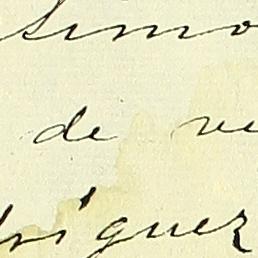 simo
de ve
dríguez